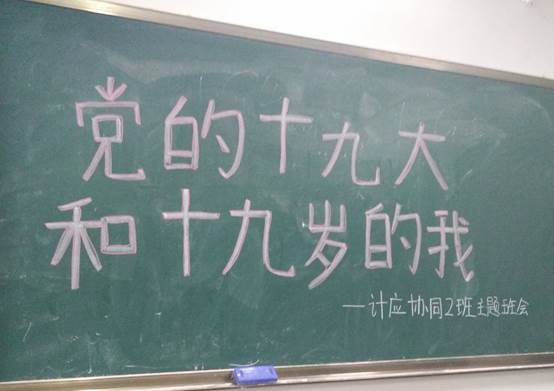 党的十九大
和十九岁的我
—计应协同2班主题班会